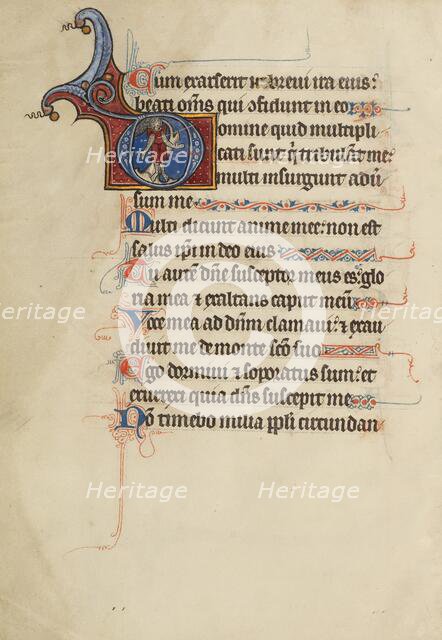 Cum exarserit i brevi ira eius:
beati oms qui ofidunt in eo
Domine quid multipli
cati sunt q̇ tribulāt me:
multi insurgunt adū
sum me
Multi dicunt anime mee: non est
salus ipi in deo eius
Tu autē dn̄e susceptor meus es: glo
ria mea ⁊ exaltans caput meū
Voce mea ad dn̄m clamaui: ⁊ exau
diuit me de monte sc̄o suo
Ego dormiui ⁊ soporatus sum: et
exurrexi quia dn̄s suscepit me
Nō timebo milia ppli circundan
Heritage
Heritage
Heritage
Heritage
Heritage
Heritage
Heritage